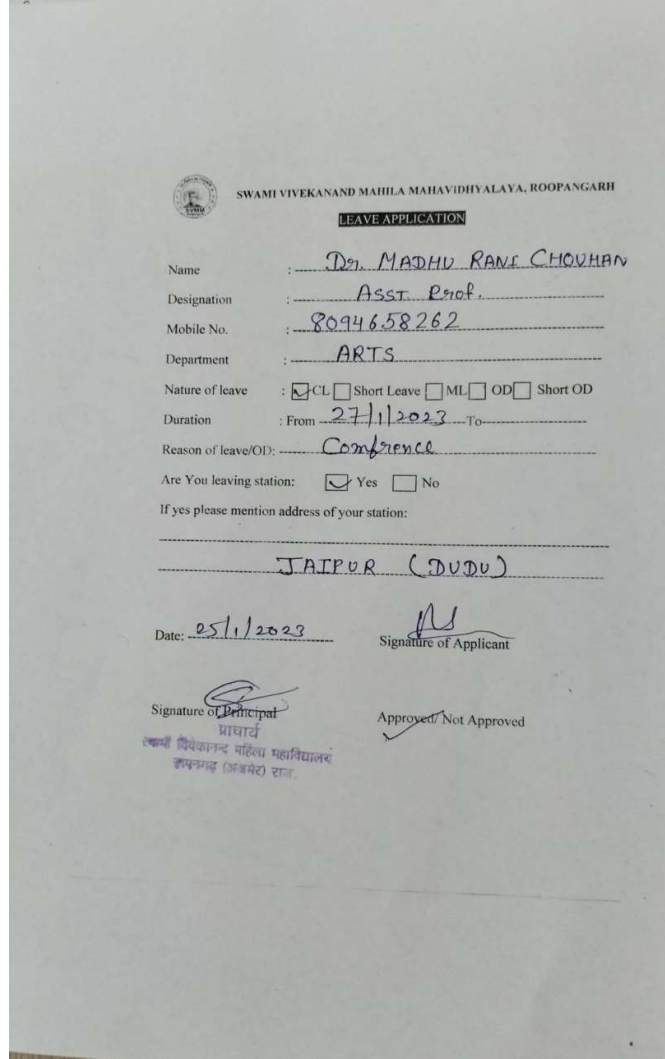 SVMM
SWAMI VIVEKANAND MAHILA MAHAVIDHYALAYA, ROOPANGARH
LEAVE APPLICATION
Name : Dr. MADHU RANI CHOUHAN
Designation : ASST. Prof.
Mobile No. : 8094658262
Department : ARTS
Nature of leave : CL Short Leave ML OD Short OD
Duration : From 27/1/2023 To
Reason of leave/OD: Comfrence
Are You leaving station: Yes No
If yes please mention address of your station:
JAIPUR (DUDU)
Date: 25/1/2023
Signature of Applicant
Signature of Principal
Approved/ Not Approved
प्राचार्य
स्वामी विवेकानन्द महिला महाविद्यालय
रूपनगढ़ (अजमेर) राज.